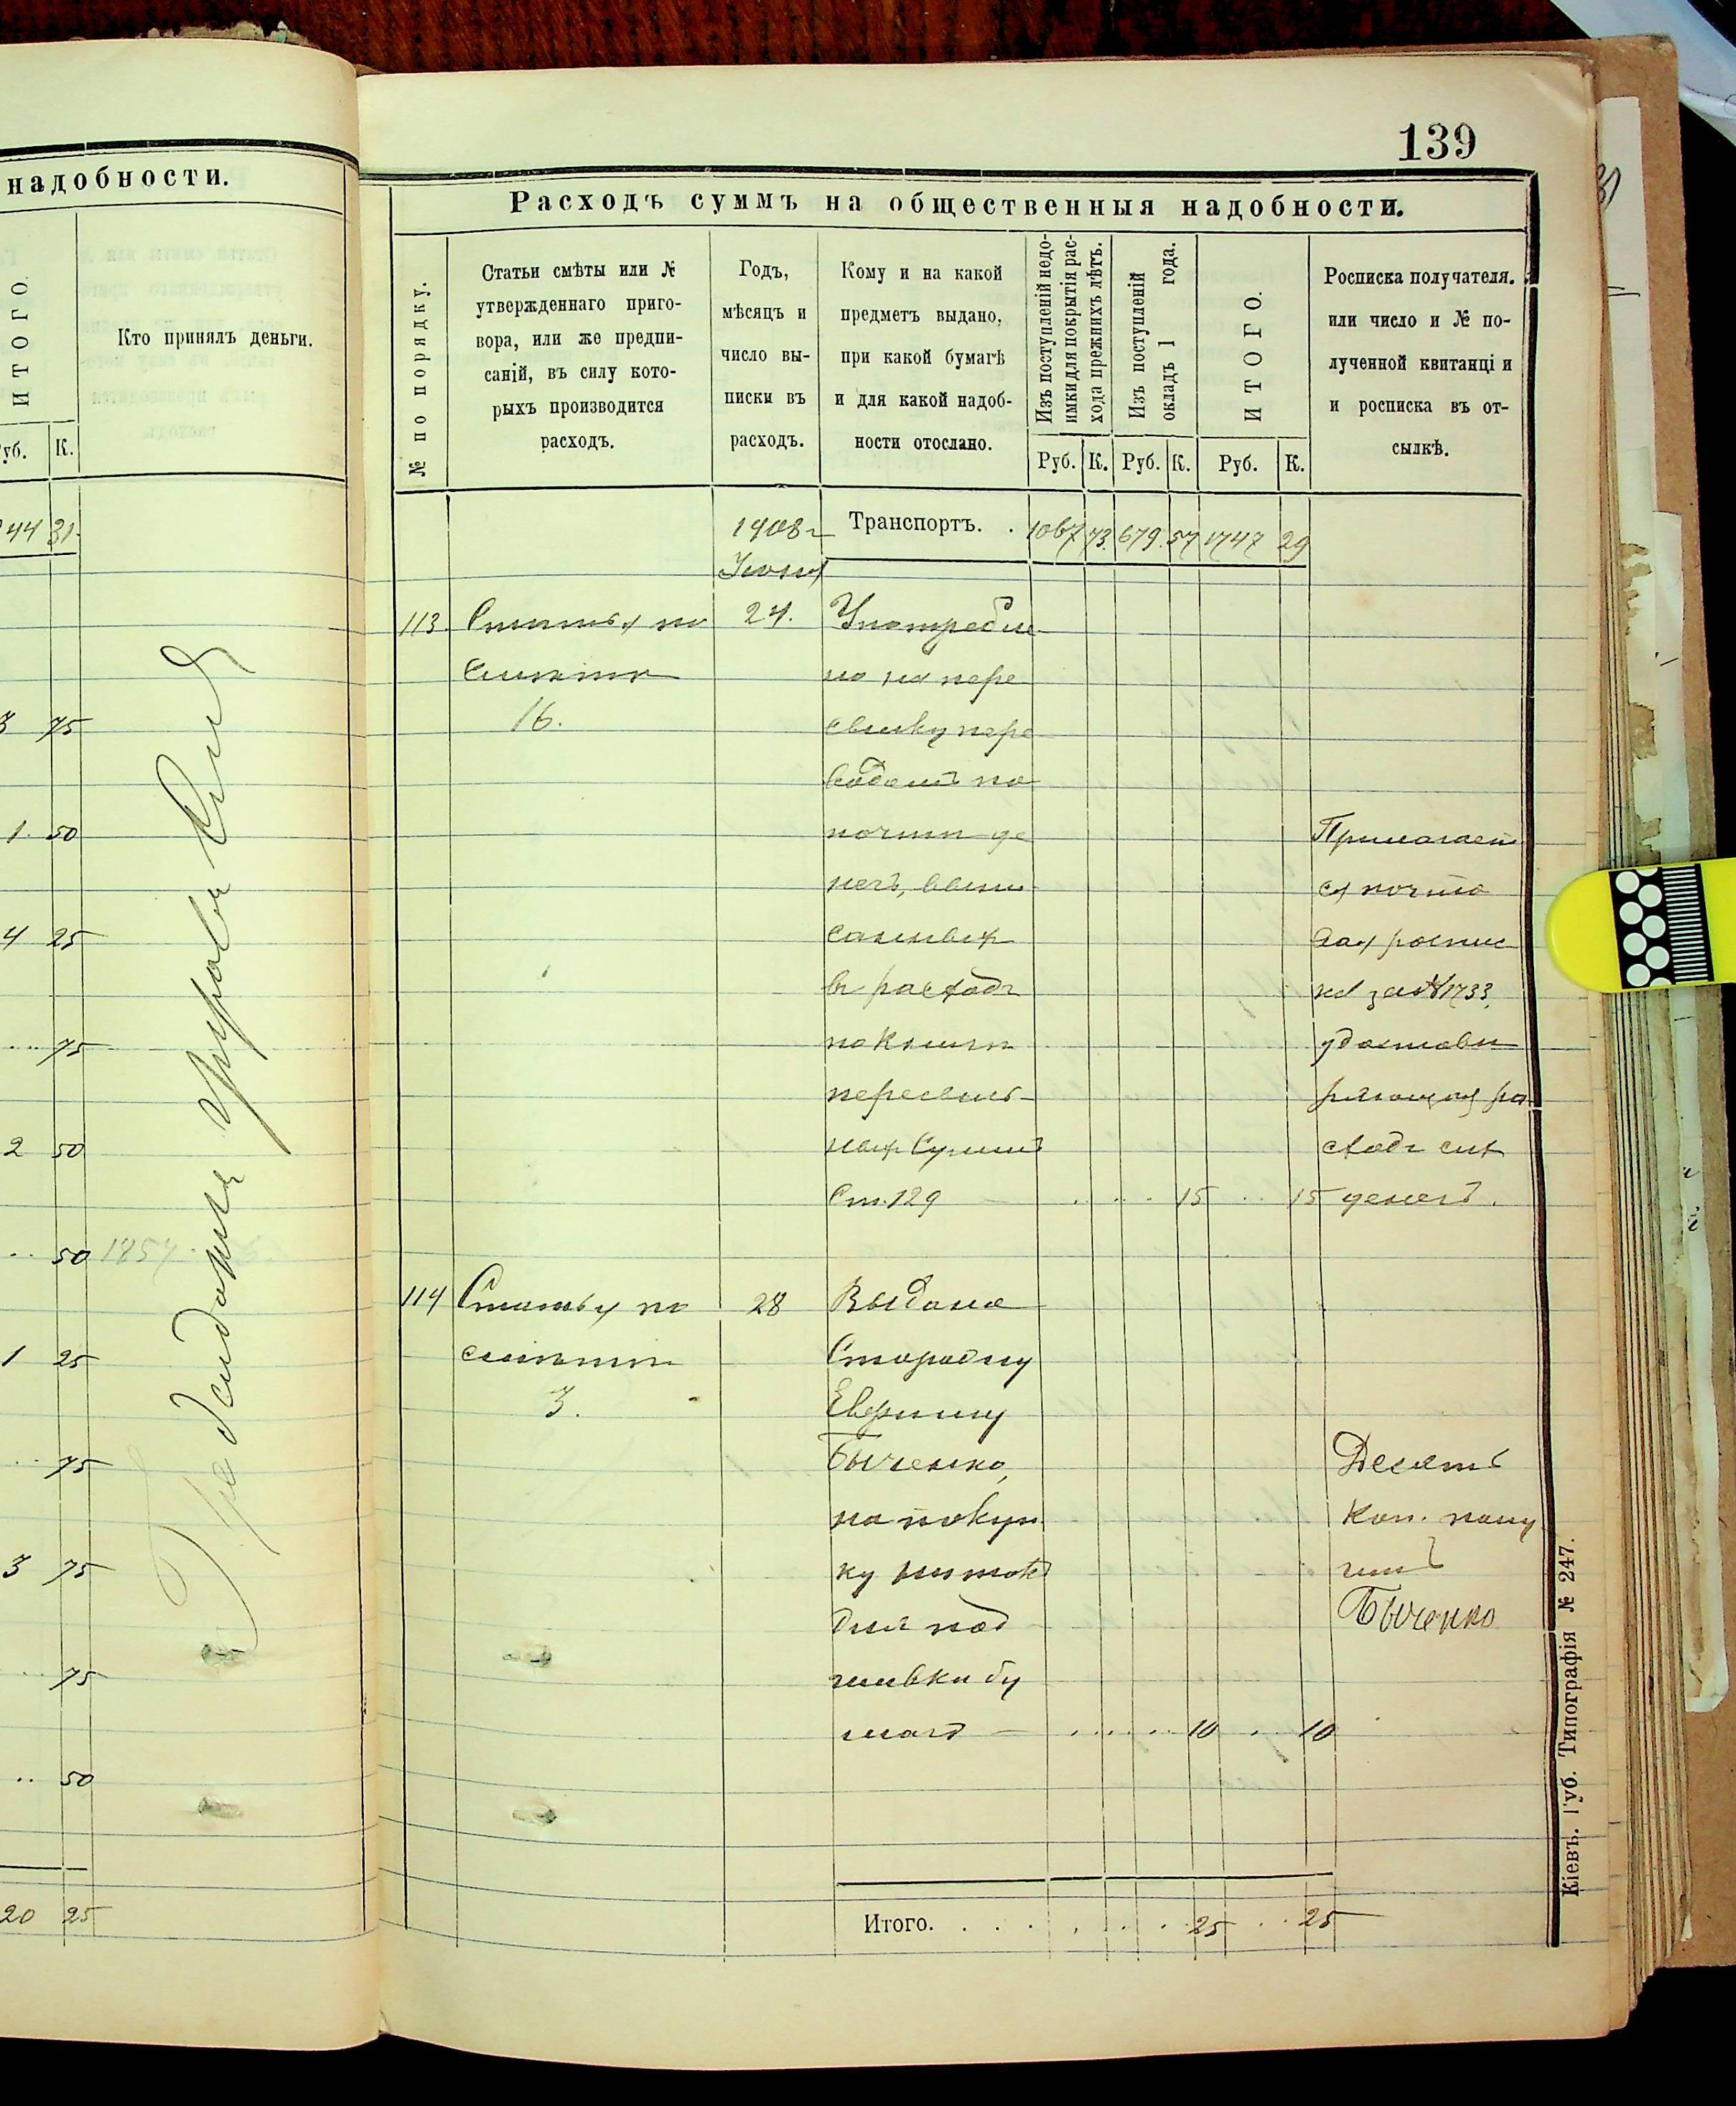 надобности.
ИТОГО.
Кто принялъ деньги.
Руб. К.
44 31.
3 75
1. 50
4 25
.. 75
2 50
.. 50
1 25
.. 75
3 75
.. 75
.. 50
20 25
139
Расходъ суммъ на общественныя надобности.
№ по порядку.
Статьи смѣты или №
утвержденнаго приго-
вора, или же предпи-
саній, въ силу кото-
рыхъ производится
расходъ.
Годъ,
мѣсяцъ и
число вы-
писки въ
расходъ.
Кому и на какой
предметъ выдано,
при какой бумагѣ
и для какой надоб-
ности отослано.
Изъ поступленій недо-
имки для покрытія рас-
хода прежнихъ лѣтъ.
Изъ поступленій
окладъ 1 года.
ИТОГО.
Руб. К. Руб. К. Руб. К.
Росписка получателя.
или число и № по-
лученной квитанціи
и росписка въ от-
сылкѣ.
1908 г
Транспортъ. . 1067 73. 679. 57 1747 29
113. Статья по 24. Употребле
смѣтѣ но на пере
16. сылку пере
водомъ по
почтѣ де
негъ, выпи
санныхъ
въ расходъ
по книгѣ
пересыль-
ныхъ Суммъ
Ст. 129 15 15
Прилагает
ся почто
вая роспис
ка за № 1733,
удостовѣ
ряющая ра
сходъ сихъ
денегъ.
114 Статья по 28 Выдано
смѣтѣ Сторожу
3.
Быченко,
на покуп
ку нитокъ
для под
шивки бу
магъ 10 10
Десять
коп. полу
чилъ
Быченко
Итого. . . . . 25 . . 25
Кіевъ. Губ. Типографія № 247.